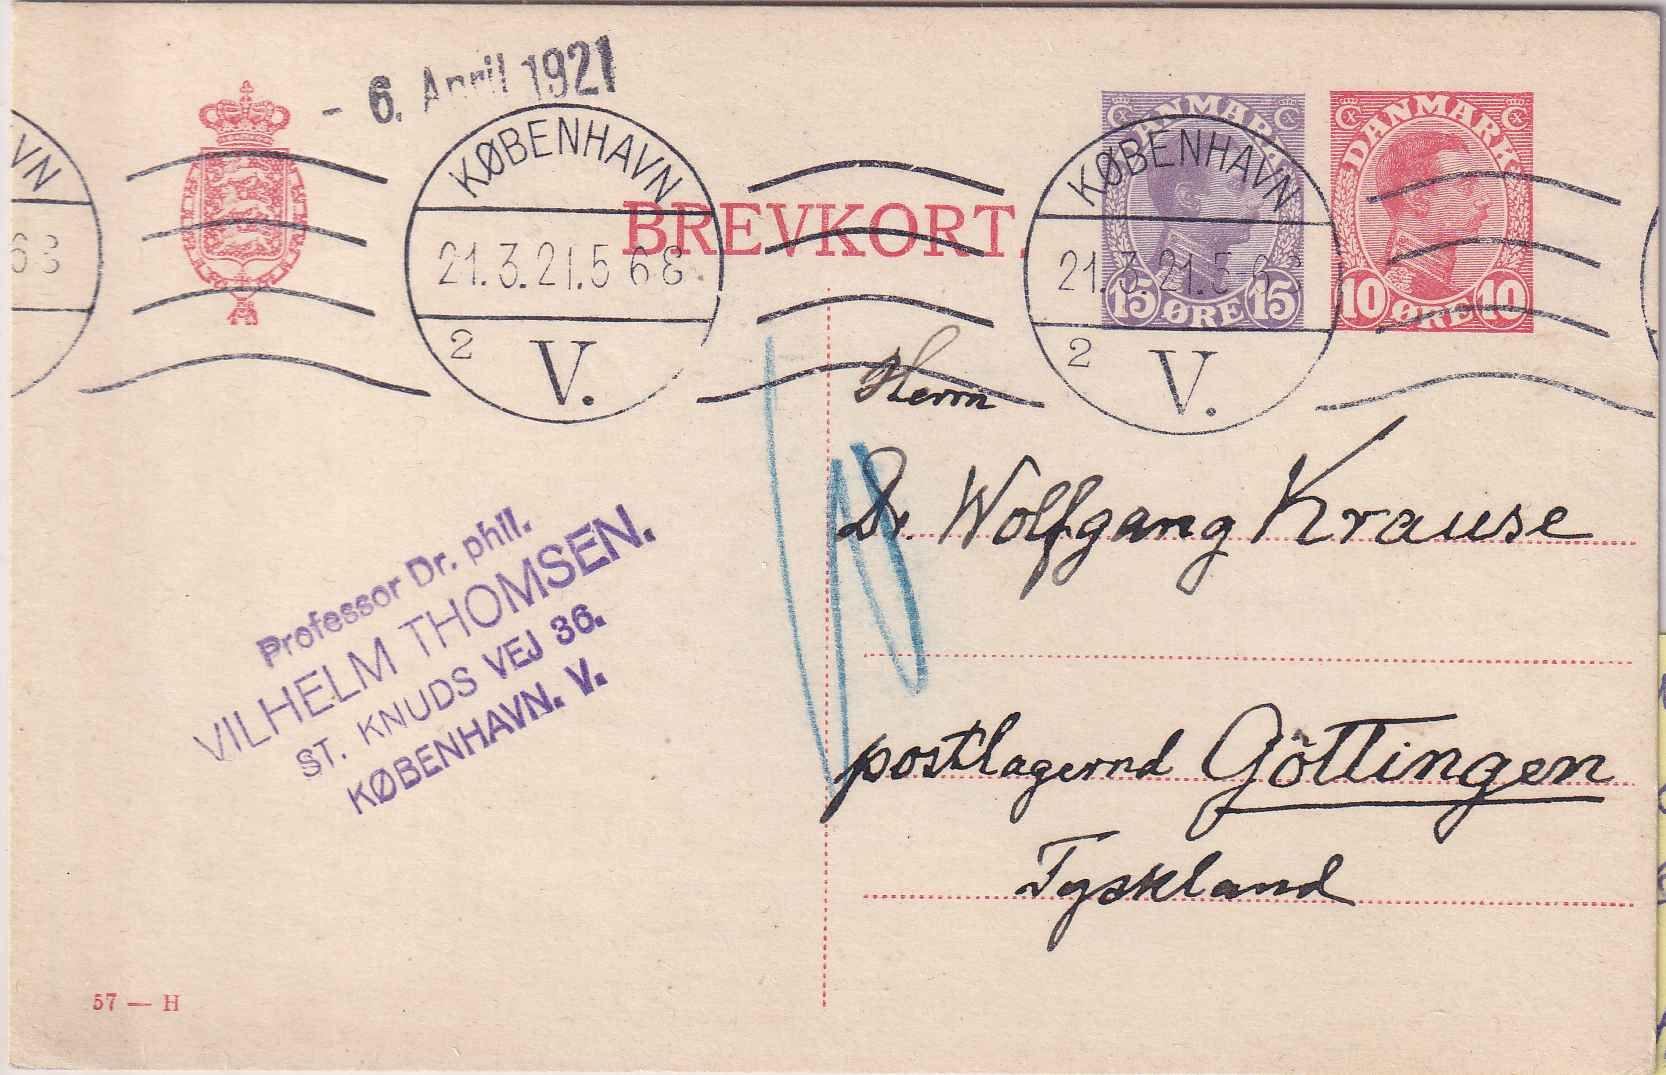 - 6. April 1921
VN
KØBENHAVN
21.3.21.5 68
2 V.
BREVKORT.
KØBENHAVN
21.3.21.5 68
2 V.
DANMARK
15 ØRE 15
DANMARK
10 ØRE 10
68
Herrn
Dr. Wolfgang Krause
postlagernd Göttingen
Tyskland
Professor Dr. phil.
VILHELM THOMSEN.
ST. KNUDS VEJ 36.
KØBENHAVN. V.
57 — H